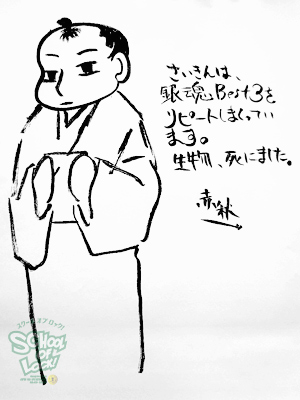 さいきんは、
銀魂Best3を
リピートしまくってい
ます。
生物、死にました。
赤秋
スクール オブ ロック!
SCHOOL
OF
LOCK!